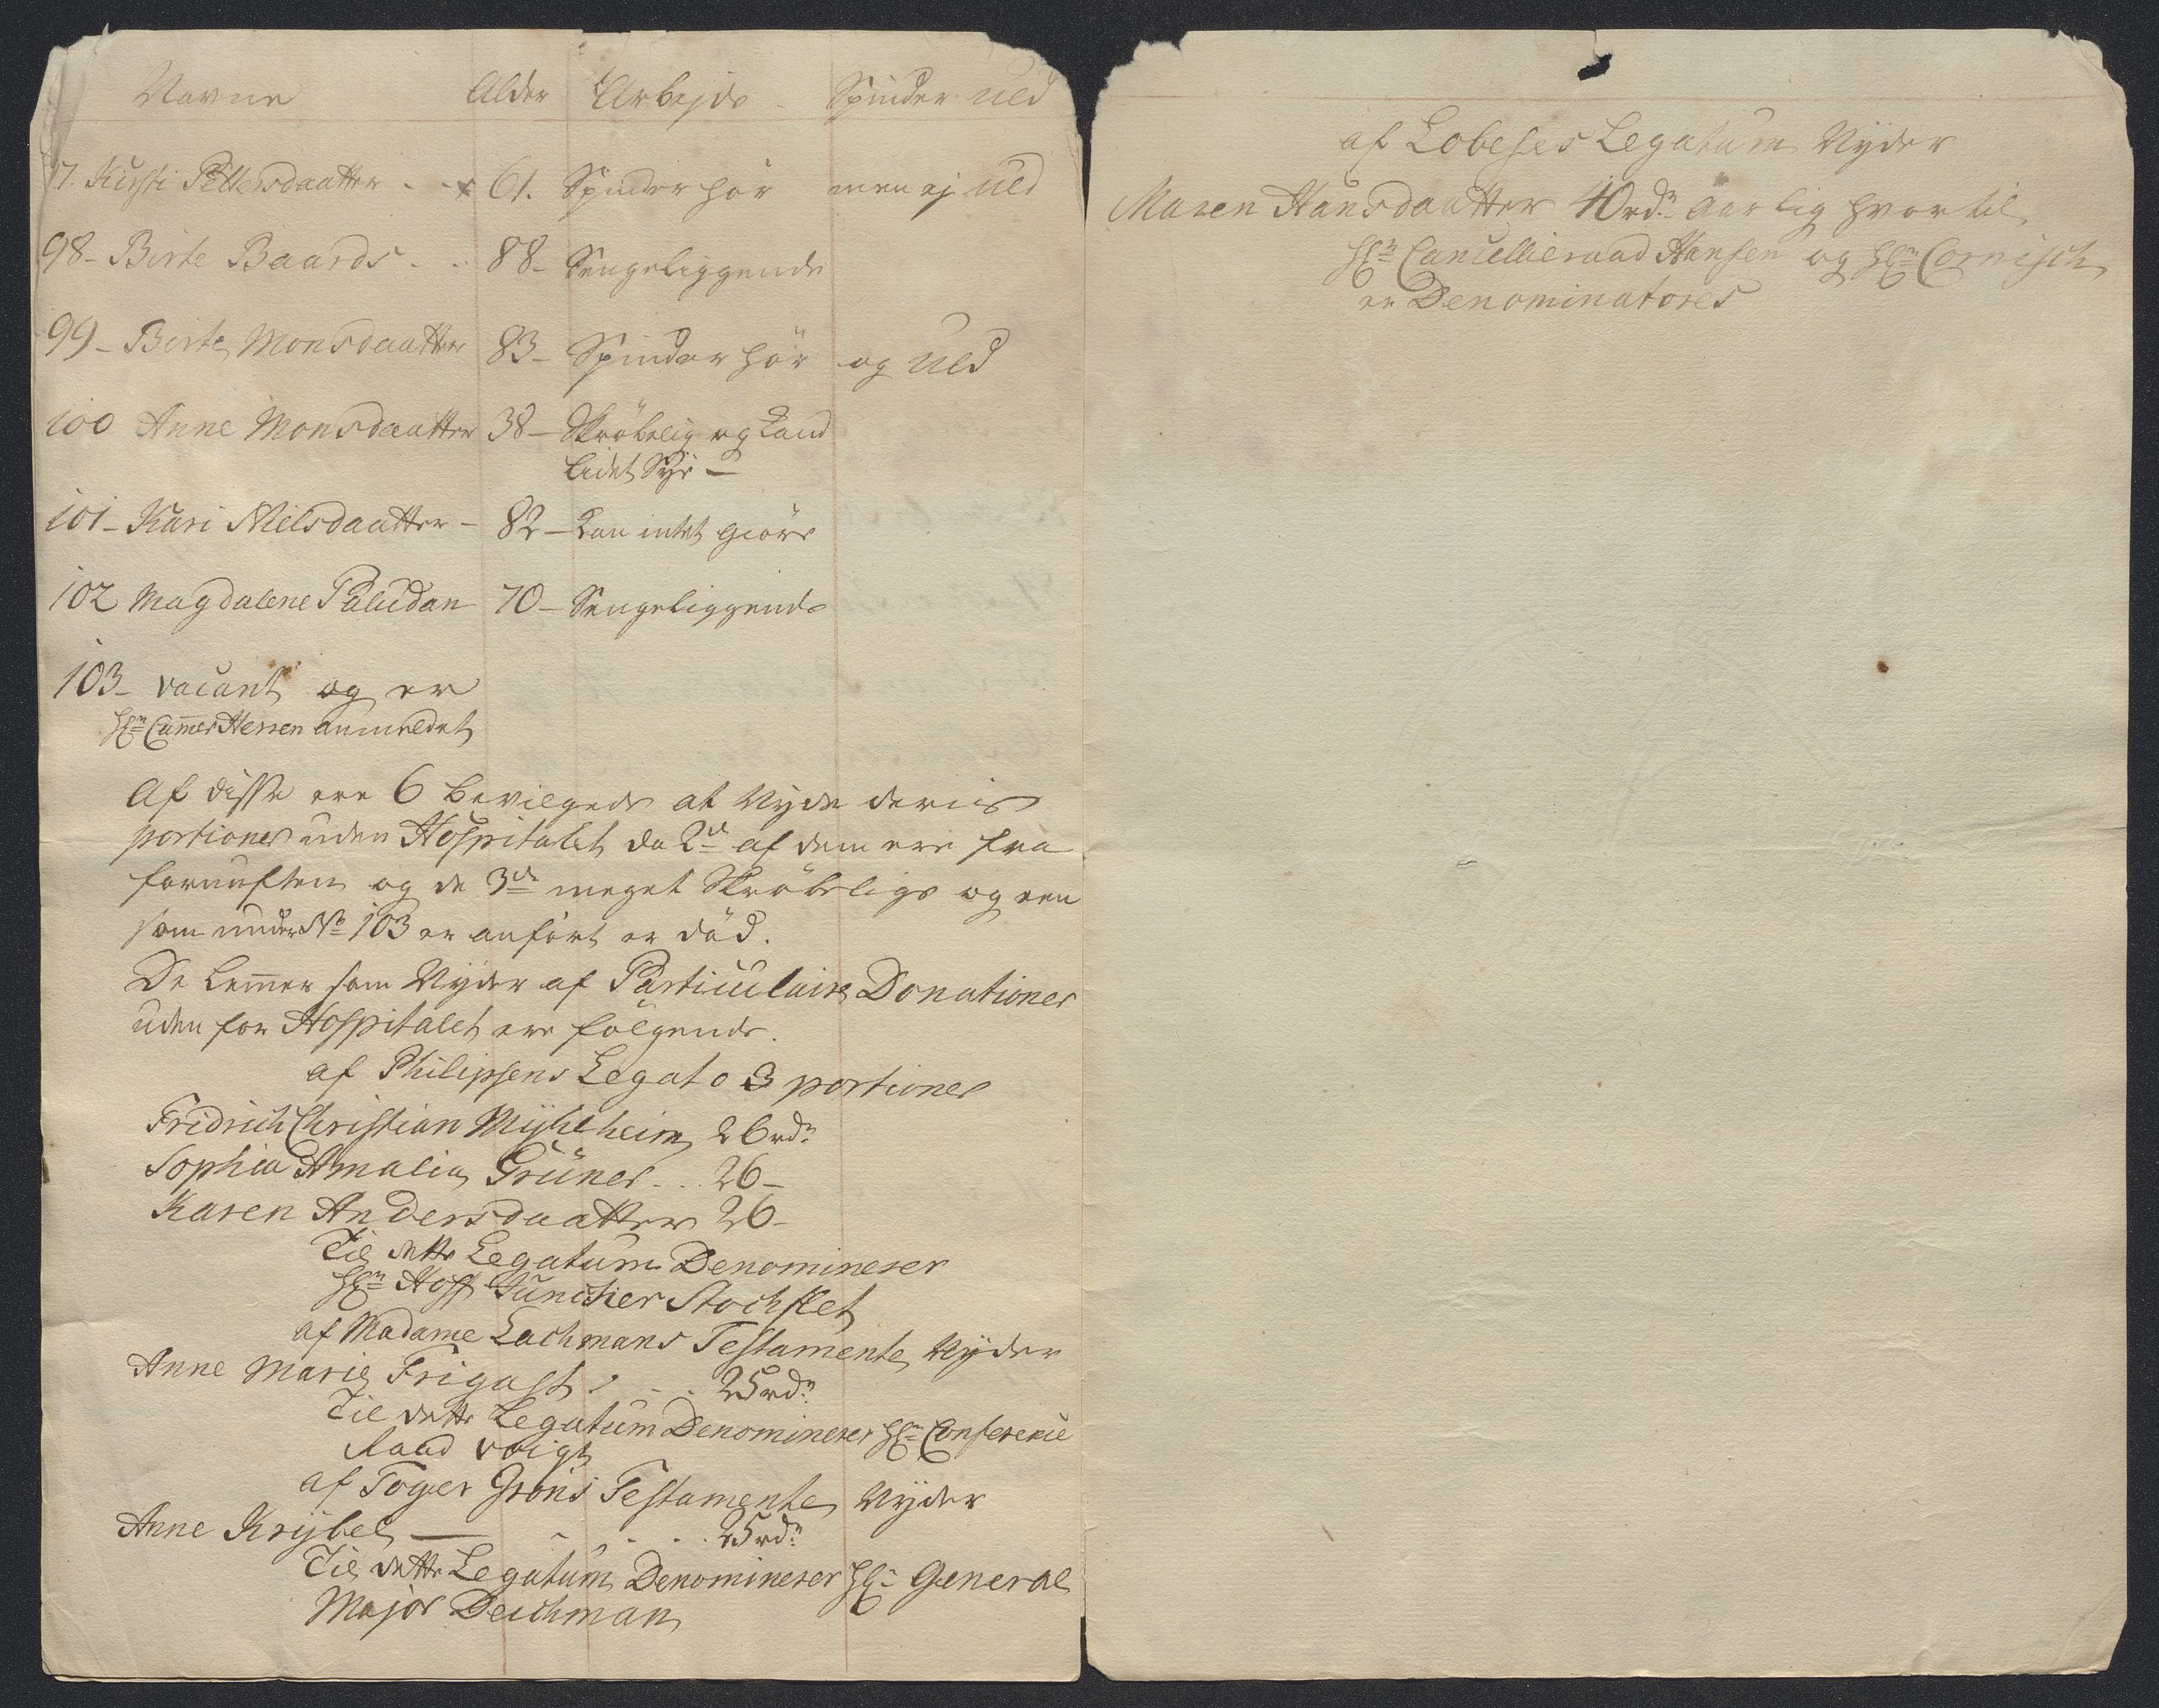 Navne Alder Arbejde Spinder uld
97. Kirsti Pettersdaatter - - 61. Spinder hør men ej uld
98 - Birte Baards - - 88 - Sengeliggende
99 - Birte Monsdaatter 83 - Spinder hör og uld
100 Anne Monsdaatter 38 - Skröbelig og kand
lidet Sye -
101 - Kari Nielsdaatter - 82 - kan intet giöre
102 Magdalene Paludan 70 - Sengeliggende
103 - vacant og er
Hr Cammer Hessen anmeldet
Af disse ere 6 bevilgede at Nyde deris
portioner uden Hospitalet da 2de af dem ere fra
fornuften og de 3de meget Skröbelige og een
som under No 103 er anfört er död.
De Lemmer som Nyder af Particulaire Donationer
uden for Hospitalet ere fölgende.
af Philipsens Legato 3 portioner
Fridrich Christian Myhlheim 26 rdr
Sophia Amalia Grüner - . . 26 -
Karen Andersdaatter 26 -
Til dette Legatum Denominerer
Hr Hoff Junchier Stochflet
af Madame Lachmans Testamente Nyder
Anne Marie Frigast - - . 25 rdr
Til dette Legatum Denominerer Hr Conference
Raad Voigt
af Toger Gröns Testamente Nyder
Anne Krybel - - . . . 25 rdr
Til dette Legatum Denominerer Hr General
Major Deichman
af Lobeses Legatum Nyder
Maren Hansdaatter 40 rdr aarlig hvortil
Hr Cancellieraad Hansen og Hr Cornisch
er Denominatores